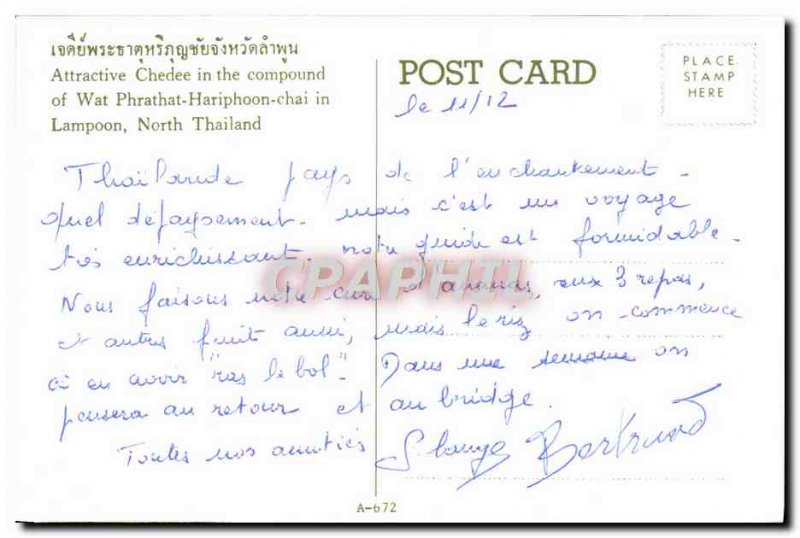 เจดีย์พระธาตุหริภุญชัยจังหวัดลำพูน
Attractive Chedee in the compound
of Wat Phrathat-Hariphoon-chai in
Lampoon, North Thailand
POST CARD
PLACE
STAMP
HERE
le 11/12
Thaïlande pays de l'enchantement -
quel dépaysement - mais c'est un voyage
très enrichissant. notre guide est formidable -
Nous faisons notre cure d'ananas, aux 3 repas,
et autres fruits aussi, mais le riz on commence
à en avoir "ras le bol". Dans une semaine on
pensera au retour et au bridge.
Toutes nos amitiés
Bertrand
CPAPHIL
A-672